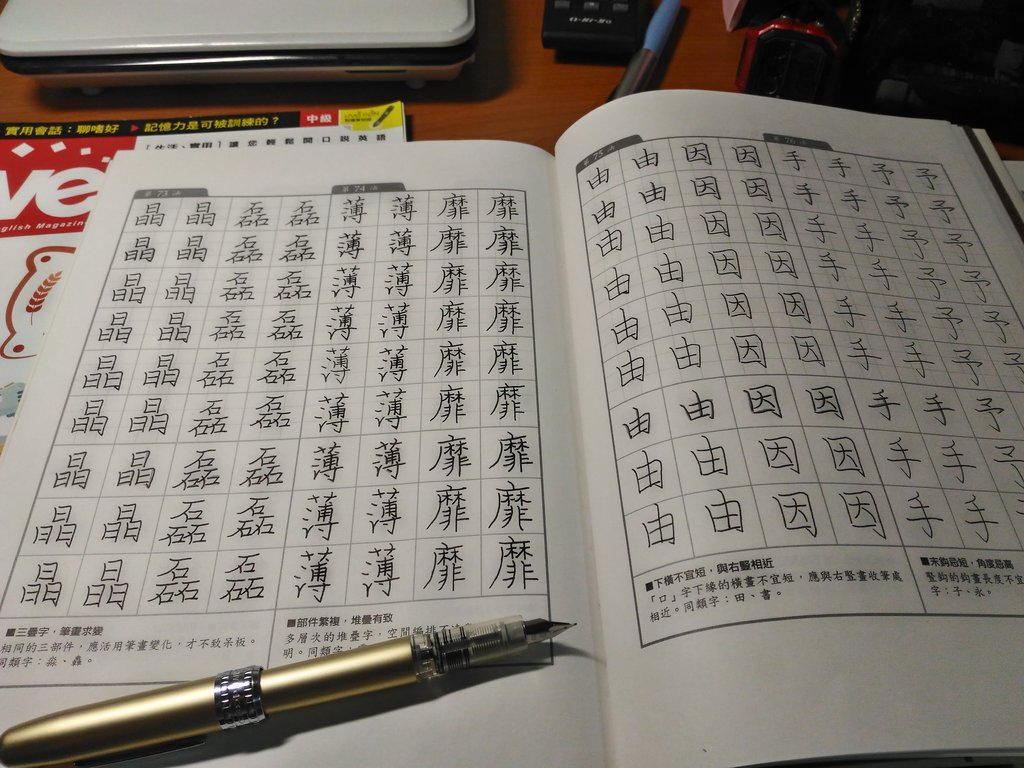 實用會話:聊嗜好 ▶ 記憶力是可被訓練的?
中級
[生活、實用] 讓您輕鬆開口說英語
ve
glish Magazin
第 73 法
第 74 法
晶 晶 磊 磊 薄 薄 靡 靡
晶 晶 磊 磊 薄 薄 靡 靡
晶 晶 磊 磊 薄 薄 靡 靡
晶 晶 磊 磊 薄 薄 靡 靡
晶 晶 磊 磊 薄 薄 靡 靡
晶 晶 磊 磊 薄 薄 靡 靡
晶 晶 磊 磊 薄 薄 靡 靡
晶 晶 磊 磊 薄 薄 靡 靡
晶 晶 磊 磊 薄 薄 靡 靡
■三疊字,筆畫求變
相同的三部件,應活用筆畫變化,才不致呆板。
同類字:淼、蟲。
■部件繁複,堆疊有致
多層次的堆疊字,空間編排
明。同類字
第 75 法
第 76 法
由 由 因 因 手 手 予 予
由 由 因 因 手 手 予 予
由 由 因 因 手 手 予 予
由 由 因 因 手 手 予 予
由 由 因 因 手 手 予 予
由 由 因 因 手 手 予 予
由 由 因 因 手 手 予
由 由 因 因 手 手 予
由 由 因 因 手 手
■下橫不宜短,與右豎相近
「口」字下緣的橫畫不宜短,應與右豎畫收筆處
相近。同類字:田、書。
■末鉤忌短,角度忌高
豎鉤的鉤畫長度不宜
字:子、永。